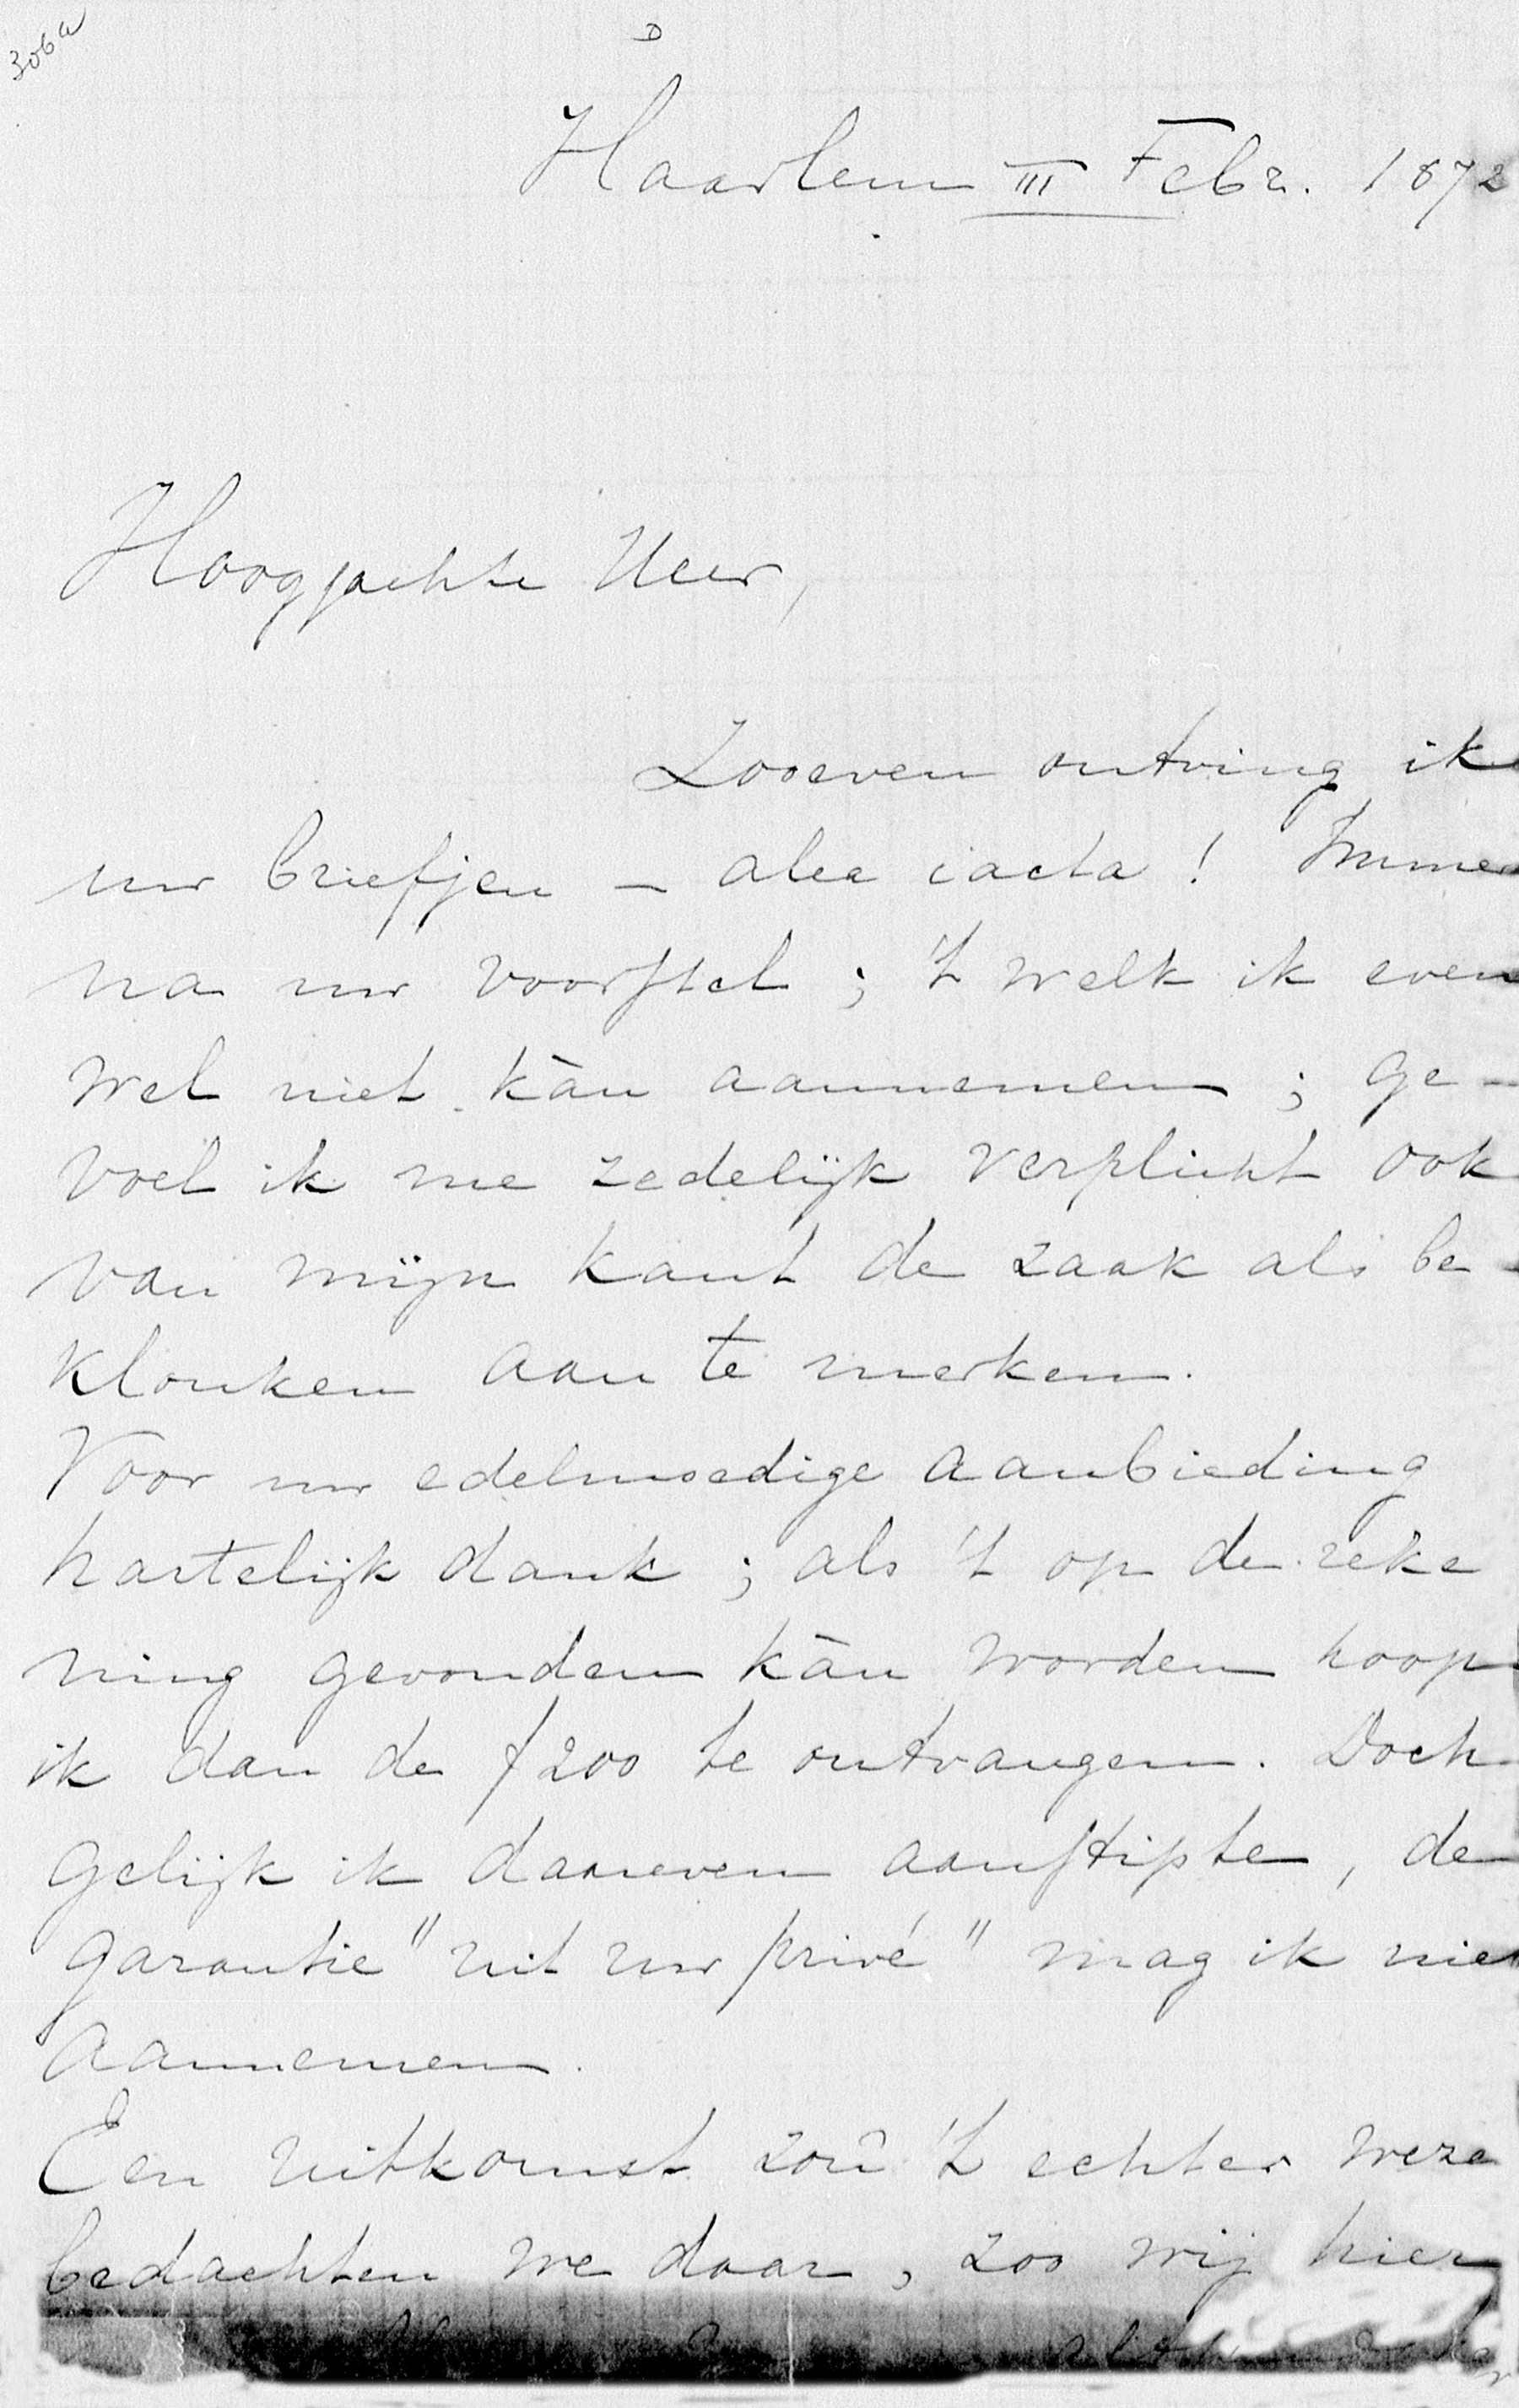 306a
D
Haarlem III Febr. 1872
Hooggachte Heer,
Zooeven ontving ik
uw briefjen – alea iacta! Immer
na uw voorstel; 't welk ik even
wel niet kàn aannemen; ge-
voel ik me zedelijk verplicht ook
van mijn kant de zaak als be-
klonken aan te merken.
Voor uw edelmoedige aanbieding
hartelijk dank; als 't op de reke
ning gevonden kàn worden hoop
ik dan de ƒ200 te ontvangen. Doch
gelijk ik daareven aanstipte, de
garantie "uit uw privé" mag ik niet
aannemen.
Een uitkomst zoû 't echter weze
bedachten we daar, zoo wij hier